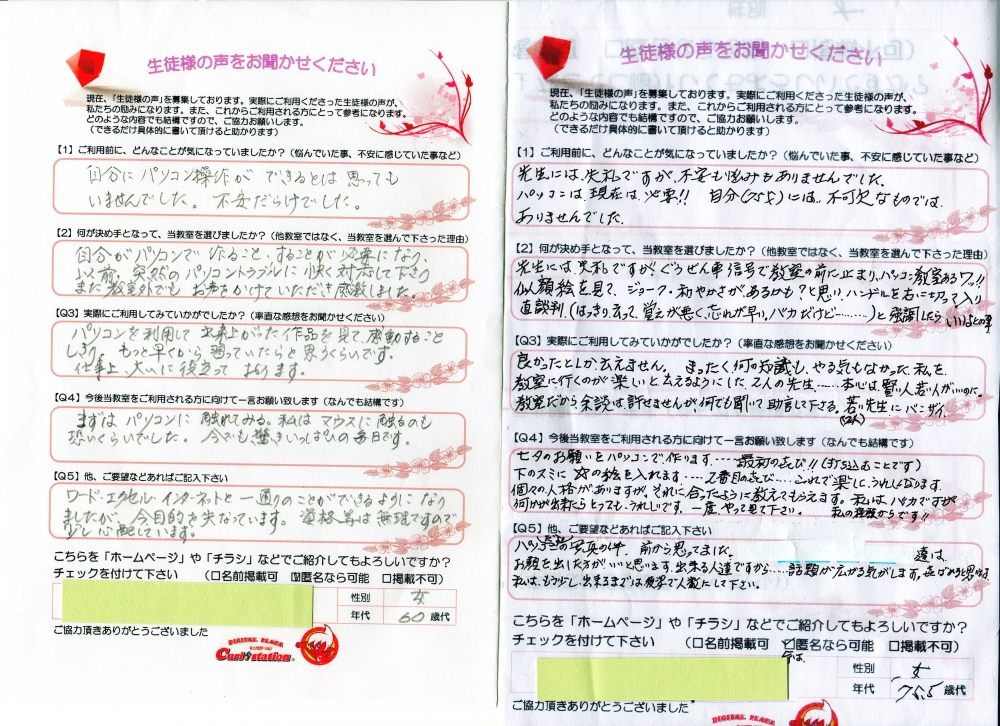 生徒様の声をお聞かせください
現在、「生徒様の声」を募集しております。実際にご利用くださった生徒様の声が、
私たちの励みになります。また、これからご利用される方にとって参考になります。
どのような内容でも結構ですので、ご協力お願いします。
（できるだけ具体的に書いて頂けると助かります）
【1】ご利用前に、どんなことが気になっていましたか？（悩んでいた事、不安に感じていた事など）
自分にパソコン操作が できるとは思っても
いませんでした。不安だらけでした。
【2】何が決め手となって、当教室を選びましたか？（他教室ではなく、当教室を選んで下さった理由）
自分がパソコンで作ること、することが必要になり
以前、突然のパソコントラブルに心快く対応して下さり
また教室外でも お声をかけていただき感激しました。
【Q3】実際にご利用してみていかがでしたか？（率直な感想をお聞かせください）
パソコンを利用して 出来上がった作品を見て、感動すること
しきり。もっと早くから習っていたらと思うくらいです。
仕事上、大いに役立って おります。
【Q4】今後当教室をご利用される方に向けて一言お願い致します（なんでも結構です）
まずは パソコンに 触れてみる。私は マウスに触るのも
恐いくらいでした。今でも驚きいっぱいの毎日です。
【Q5】他、ご要望などあればご記入下さい
ワード・エクセル・インターネットと 一通りのことができるようになり
ましたが、今目的を失なっています。資格者は無理ですので
少し心配しています。
こちらを「ホームページ」や「チラシ」などでご紹介してもよろしいですか？
チェックを付けて下さい （□名前掲載可 ☑匿名なら可能 □掲載不可）
性別 女
年代 60 歳代
ご協力頂きありがとうございました
DIGITAL PLAZA
Curio station
生徒様の声をお聞かせください
現在、「生徒様の声」を募集しております。実際にご利用くださった生徒様の声が、
私たちの励みになります。また、これからご利用される方にとって参考になります。
どのような内容でも結構ですので、ご協力お願いします。
（できるだけ具体的に書いて頂けると助かります）
【1】ご利用前に、どんなことが気になっていましたか？（悩んでいた事、不安に感じていた事など）
先生には、失礼ですが、不安も悩みもありませんでした。
パソコンは、現在は、必要!! 自分(75.5)には、不可欠なものでは、
ありませんでした。
【2】何が決め手となって、当教室を選びましたか？（他教室ではなく、当教室を選んで下さった理由）
先生には、失礼ですが、ぐうぜん車信号で教室の前に止まり、パソコン教室あるワ!!
似顔絵を見て、ジョーク・和やかさがあるかも？と思い、ハンドルを右に切って入り
直談判、(はっきり言って、覚えが悪く、忘れが早い、バカだけど………)と強調したら いいよとの事
【Q3】実際にご利用してみていかがでしたか？（率直な感想をお聞かせください）
良かったとしか言えません。まったく何の知識も、やる気もなかった私を、
教室に行くのが楽しいと言えるようにした 2人の先生……本心は、賢い人、若い人がいいのに。
教室だから余談は許せませんが、何でも聞いて助言して下さる。若い先生にバンザイ。
(2人)
【Q4】今後当教室をご利用される方に向けて一言お願い致します（なんでも結構です）
七夕のお願いをパソコンで作ります……最初の喜び!!(打ち込むことです)
下のスミに の絵を入れます……2番目の喜び……これで楽しく、うれしくなります。
個々の人格がありますが、それに合ったように教えてもらえます。私は、バカですが
何かが出来たら とっても、うれしいです。一度、やって見て下さい。 私の経験からです!!
【Q5】他、ご要望などあればご記入下さい
の写真の件、前から思ってました。 達は、
お顔を出した方がいいと思います、出来る人達ですから……話題が広がる気がします。
私は、もう少し、出来るまでは後楽で人数にして下さい。
こちらを「ホームページ」や「チラシ」などでご紹介してもよろしいですか？
チェックを付けて下さい （□名前掲載可 ☑匿名なら可能 □掲載不可）
今は、
性別 女
年代 75.5 歳代
ご協力頂きありがとうございました
DIGITAL PLAZA